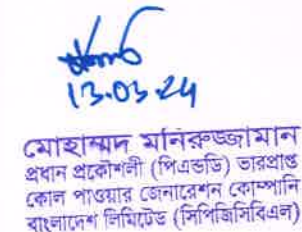 13.03.24
মোহাম্মদ মনিরুজ্জামান
প্রধান প্রকৌশলী (পিএন্ডডি) ভারপ্রাপ্ত
কোল পাওয়ার জেনারেশন কোম্পানি
বাংলাদেশ লিমিটেড (সিপিজিসিবিএল)